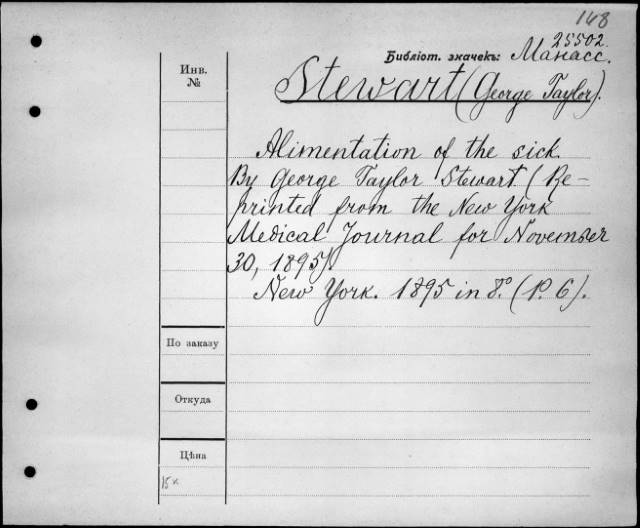 148
25502.
Библіот. значекъ: Манасс.
Инв.
№
Stewart (George Taylor).
Alimentation of the sick.
By George Taylor Stewart (Re-
printed from the New York
Medical Journal for November
30, 1895).
New York. 1895 in 8º. (P. 6).
По заказу
Откуда
Цѣна
15 к